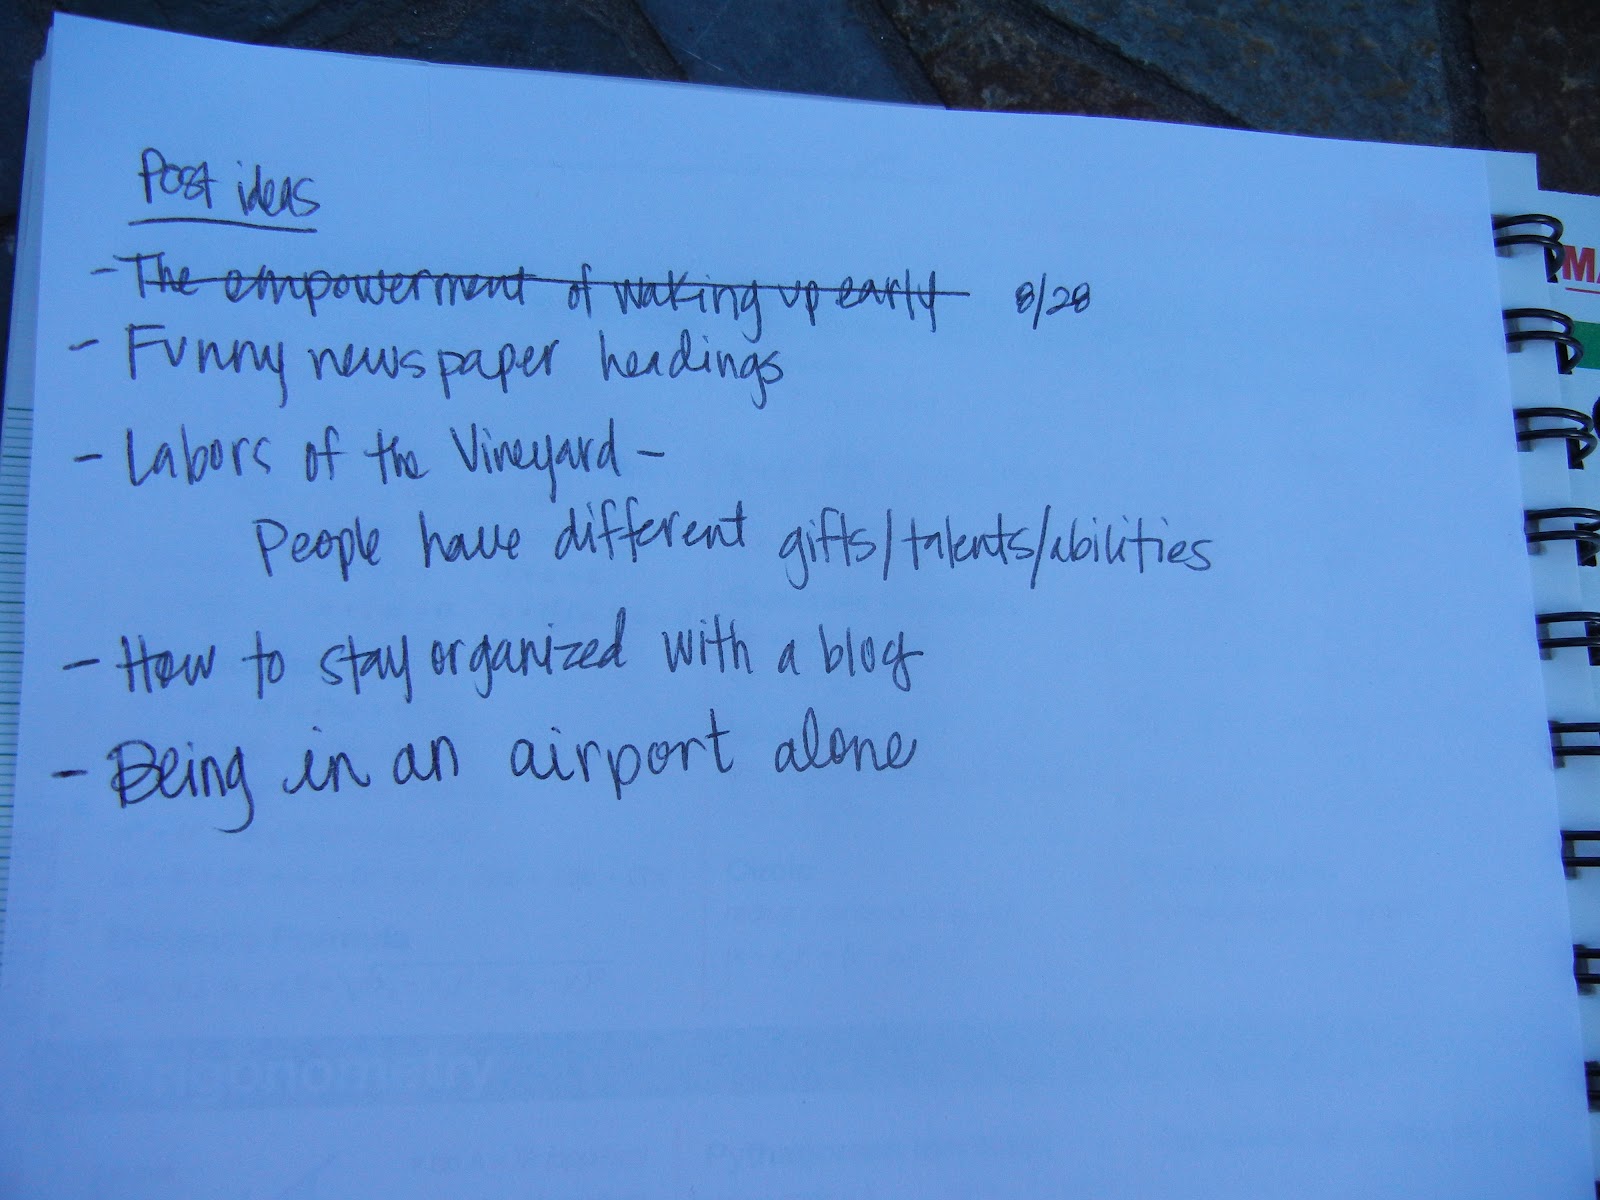 Post ideas
- The empowerment of waking up early 8/28
- Funny newspaper headings
- Labors of the Vineyard -
People have different gifts/talents/abilities
- How to stay organized with a blog
- Being in an airport alone
Trigonometry